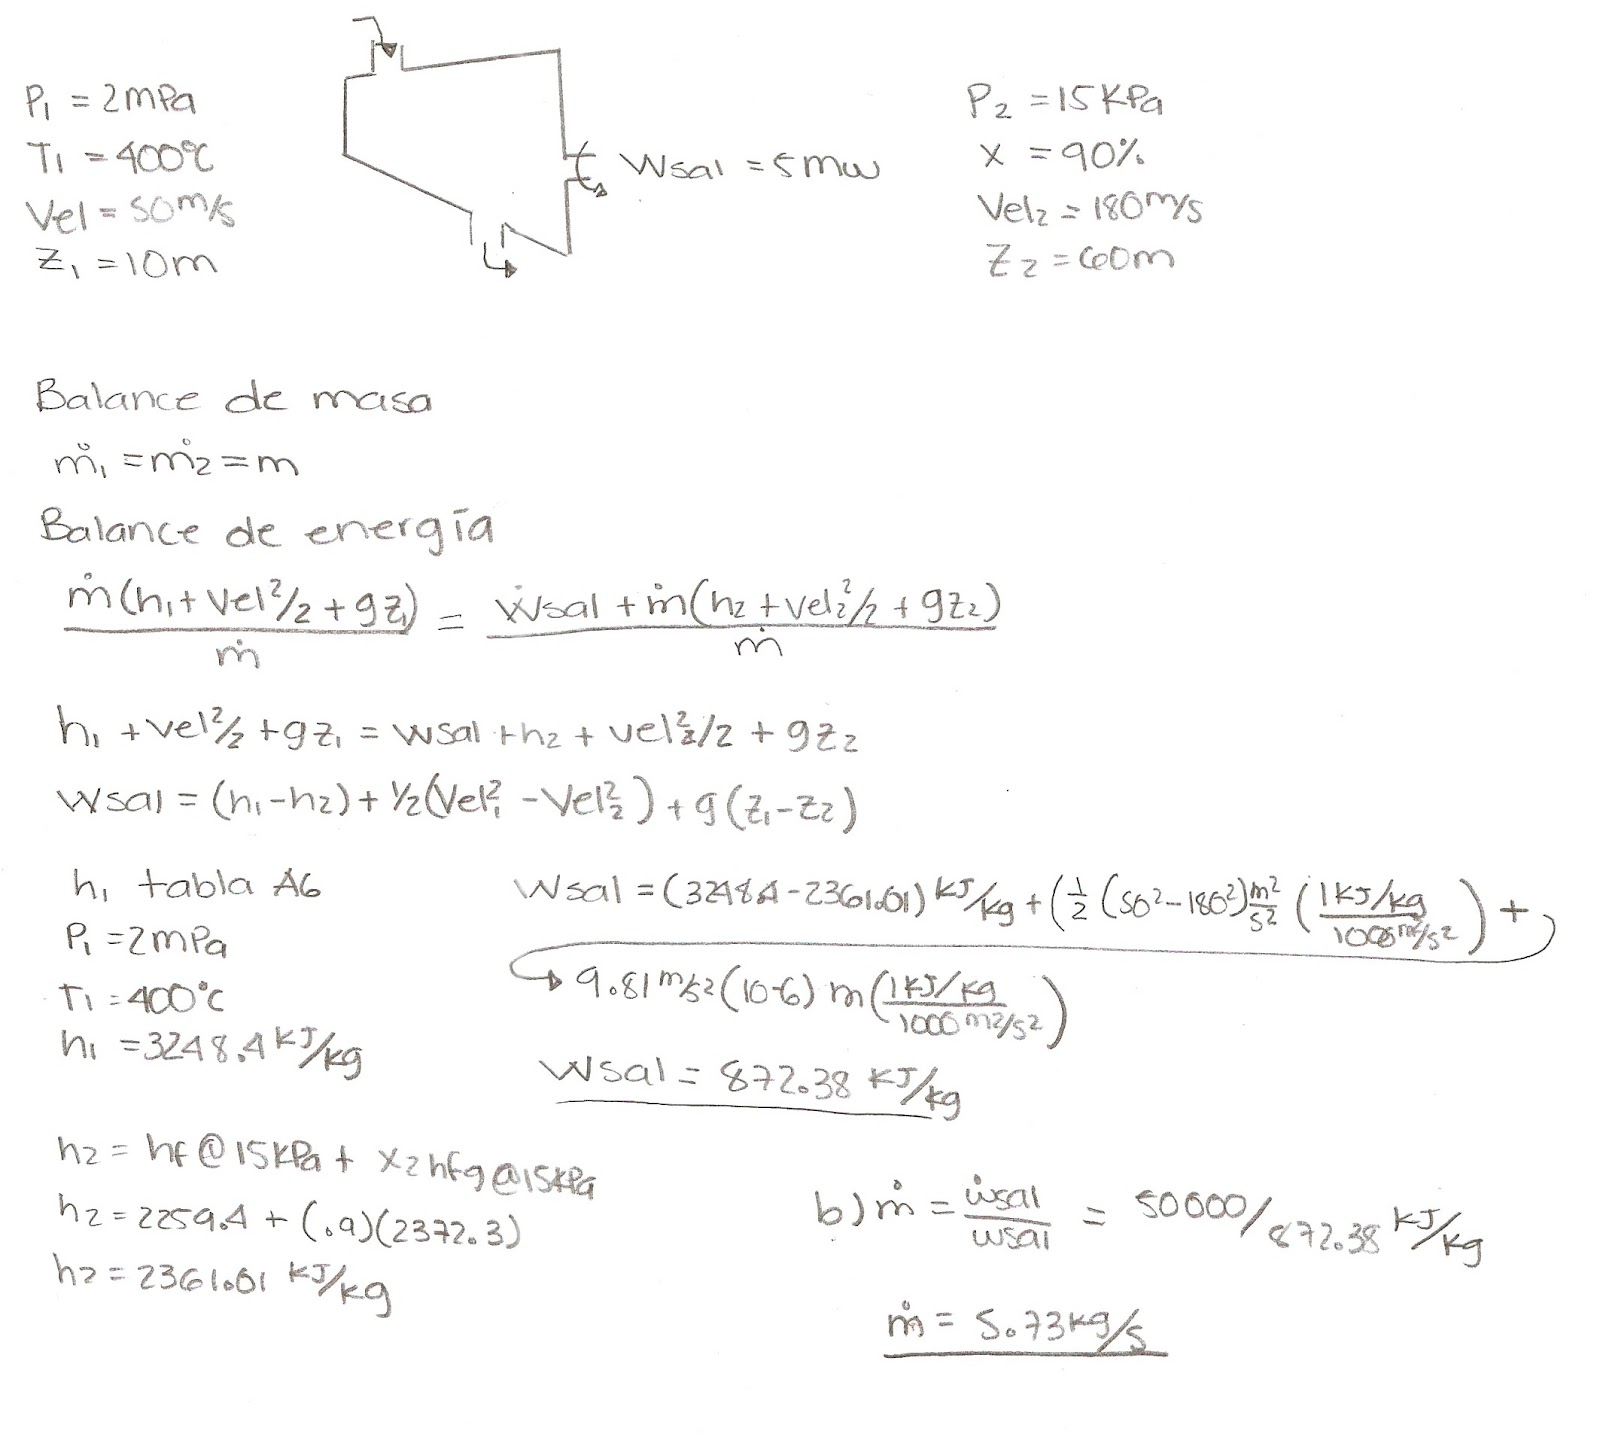 P₁ = 2mPa
T₁ = 400°C
Vel = 50m/s
Z₁ = 10m
Wsal = 5mw
P₂ = 15KPa
X = 90%
Vel₂ = 180m/s
Z₂ = 60m
Balance de masa
ṁ₁ = ṁ₂ = m
Balance de energía
ṁ(h₁ + Vel²/2 + gz₁)/ṁ = Ẇsal + ṁ(h₂ + vel₂²/2 + gz₂)/ṁ
h₁ + vel²/2 + gz₁ = wsal + h₂ + vel₂²/2 + gz₂
Wsal = (h₁-h₂) + ½(Vel₁² - Vel₂²) + g(z₁-z₂)
h₁ tabla A6
P₁ = 2mPa
T₁ = 400°C
h₁ = 3248.4 KJ/kg
Wsal = (3248.4 - 2361.01) KJ/kg + (1/2 (50²-180²) m²/s² (1KJ/kg / 1000 m²/s²) +
9.81 m/s² (10-6) m (1KJ/kg / 1000 m2/s²)
Wsal = 872.38 KJ/kg
h₂ = hf@15KPa + X₂hfg@15KPa
h₂ = 2259.4 + (.9)(2372.3)
h₂ = 2361.01 KJ/kg
b) ṁ = ẇsal/wsal = 50000/872.38 KJ/kg
ṁ = 5.73kg/s